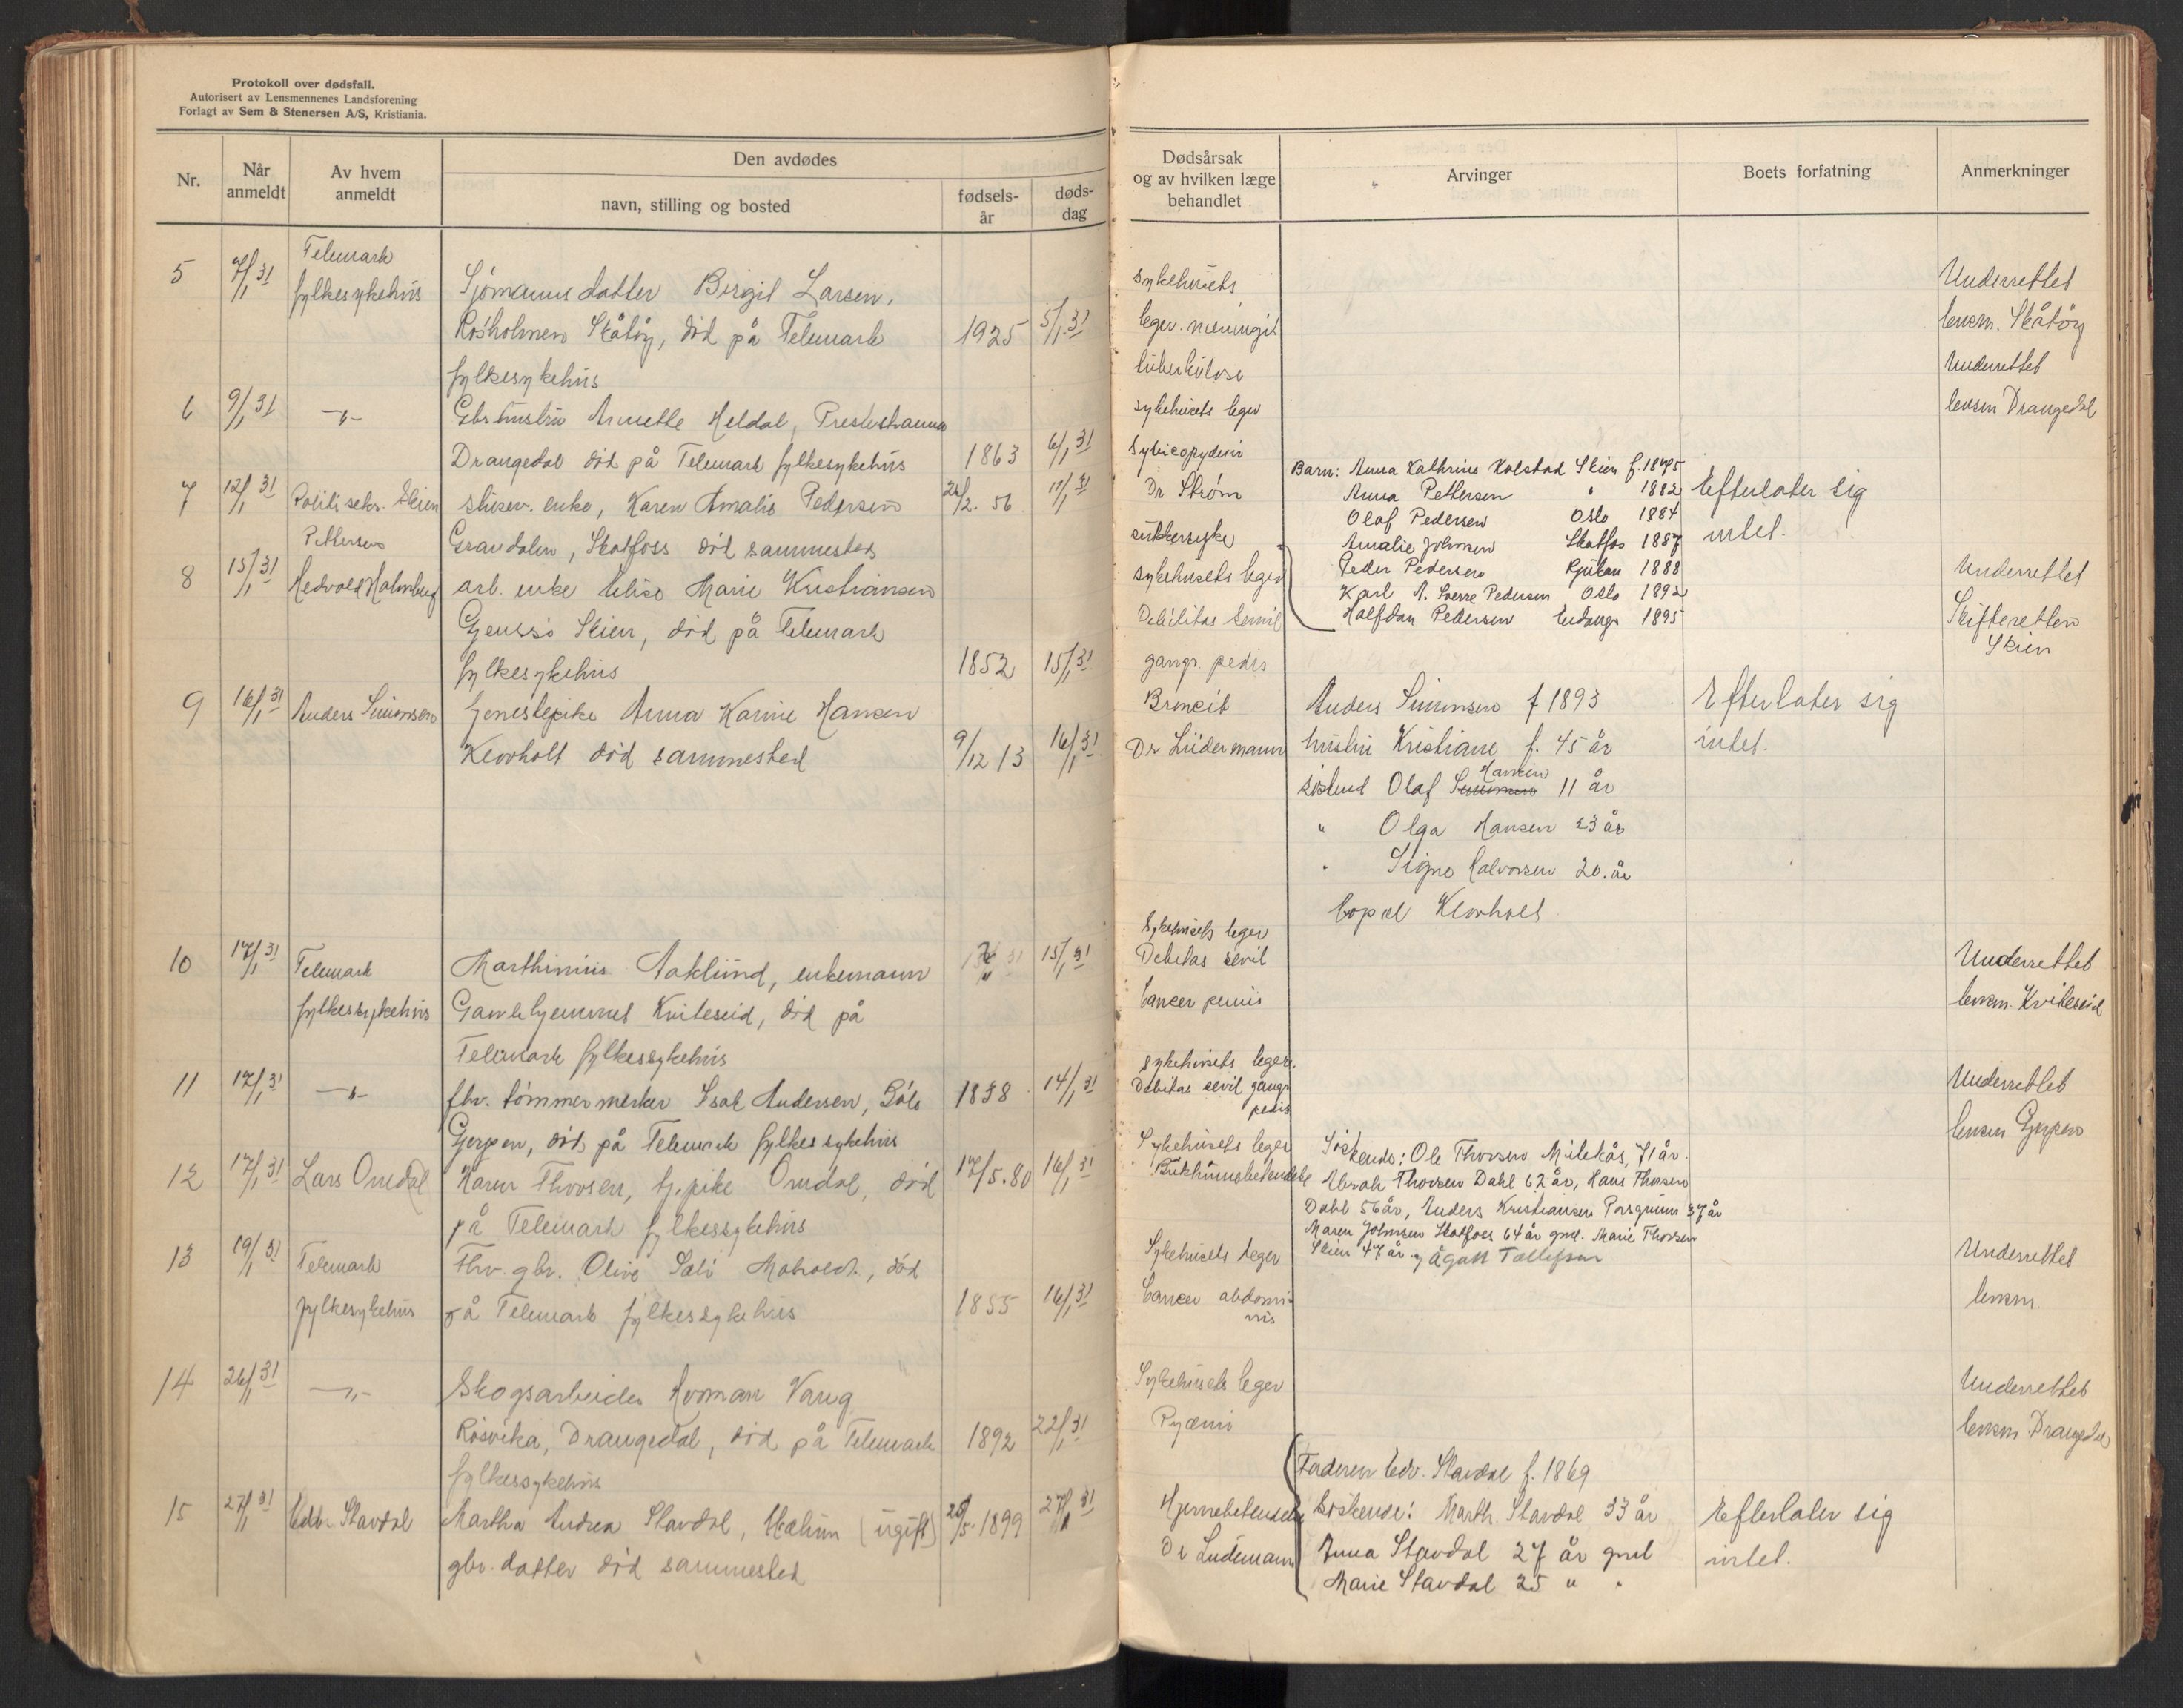 Protokoll over dødsfall.
Autorisert av Lensmennenes Landsforening
Forlagt av Sem & Stenersen A/S, Kristiania.
Nr.
Når anmeldt
Av hvem anmeldt
Den avdødes
navn, stilling og bosted
fødselsår
dødsdag
5 7/1 31 Telemark
fylkesykehus Sjømanns datter Birgit Larsen,
Skåtøy, död på Telemark 1925 5/1 31
fylkesykehus
6 9/1 31 —"— Gbr. hustru Heldal,
Drangedal död på Telemark fylkesykehus 1863 6/1 31
7 12/1 31 Skien enke, Karen Amalie Pedersen 2. 56 11/1 31
Pettersen Skotfoss död sammesteds
8 15/1 31 Hedvold Holmberg arb. enke Elise Marie Kristiansen
Skien, död på Telemark
fylkesykehus 1852 15/1 31
9 16/1 31 Anders Simonsen tjenestepike Anna Karine Hansen
Klovholt död sammested 9/12 13 16/1 31
10 17/1 31 Telemark Marthinius Aaklund, enkemann 15/1 31
fylkessykehus Gamlehjemmet Kviteseid, död på
Telemark fylkessykehus
11 17/1 31 —"— fhv. tömmermerker Isak Andersen, Böle 1838 14/1 31
Gjerpen, död på Telemark fylkessykehus
12 17/1 31 Lars Omdal Karen Thorsen, tj. pike Omdal, död 17/5. 80 16/1 31
på Telemark fylkessykehus
13 19/1 31 Telemark Fhv. gbr. Olive död
fylkesykehus på Telemark fylkessykehus 1855 16/1 31
14 26/1 31 —"— Skogsarbeider
Rösvika, Drangedal, död på Telemark 1892 22/1 31
fylkessykehus
15 27/1 31 Edv. Stavdal Martha Andrea Stavdal, (ugift) 5. 1899 27/1 31
gbr. datter död sammested
Dødsårsak
og av hvilken læge
behandlet
Arvinger
Boets forfatning
Anmerkninger
sykehusets Underrettet
leger. meningit lensm. Skåtøy
tuberkulose Underrettet
sykehusets leger lensm Drangedal
Barn: Anna Kathrine Kolstad Skien
Dr Strøm Anna Pettersen " 1882 Efterlater sig
Olaf Pedersen Oslo 1884
sukkersyke Amalie Johnsen Skotfos 1887 intet.
sykehusets leger Peder Pedersen Rjukan 1888 Underrettet
Karl A. Sverre Pedersen Oslo 1892
Debilitas senil Halfdan Pedersen Eidanger 1895 Skifteretten
Skien
gangr. pedis
Anders Simonsen f 1893 Efterlater sig
Dr Lüdermann hustru Kristiane f. 45 år intet.
Hansen
söskend Olaf Simonsen 11 år
" Olga Hansen 23 år
" Signe Halvorsen 20. år
bopæl Klovholt
Sykehusets leger
Debilitas senil Underrettet
Cancer penis lensm. Kviteseid
sykehusets leger.
Debitas senil gangr Underrettet
pedis
lensm Gjerpen
Sykehusets leger Söskende: Ole Thorsen Milekås, 71 år.
Bukhinnebetendelse Thorsen Dahl 62 år, Hans Thorsen
Dahl 56 år, Anders Kristiansen Porsgrunn 37 år
Maren Johnsen Skotfoss 64 år gml. Marie Thorsen
Sykehusets leger Skien 47 år. og Ågot Tollefsen Underrettet
Cancer abdomi- lensm.
nis
Sykehusets leger Underrettet
Pyæmi lensm Drangedal
Faderen Edv. Stavdal f. 1869
Hjernebetendelse Söskende: Marth. Stavdal 33 år Efterlater sig
Dr Ludemann Anna Stavdal 27 år gml intet.
Marie Stavdal 25 " "